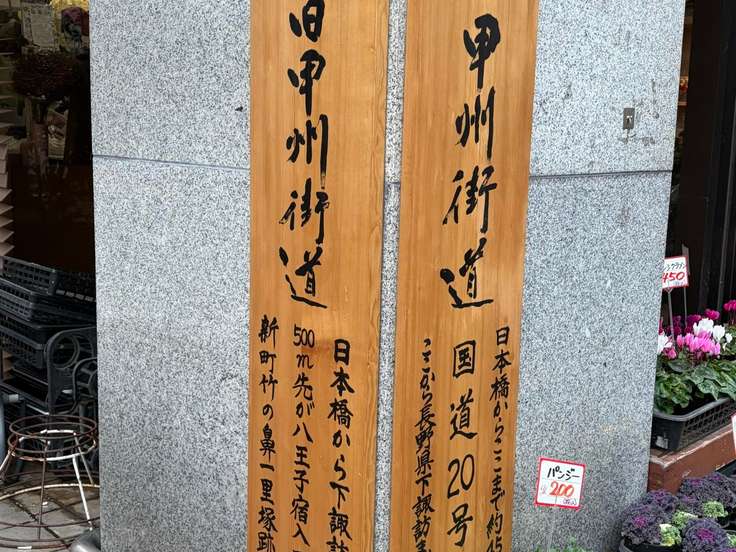 甲州街道
日本橋からここまで約45
国道20号
ここから長野県下諏訪ま
旧甲州街道
日本橋から下諏訪
500m先が八王子宿入
新町竹の鼻一里塚跡
シクラメン
450
パンジー
200